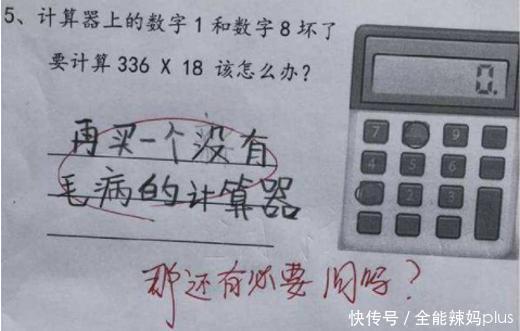 5、计算器上的数字1和数字8坏了
要计算336 X 18 该怎么办?
再买一个没有
毛病的计算器
那还有必要问吗?
0.
7
9
4
5
6
2
3
快传号/全能辣妈plus